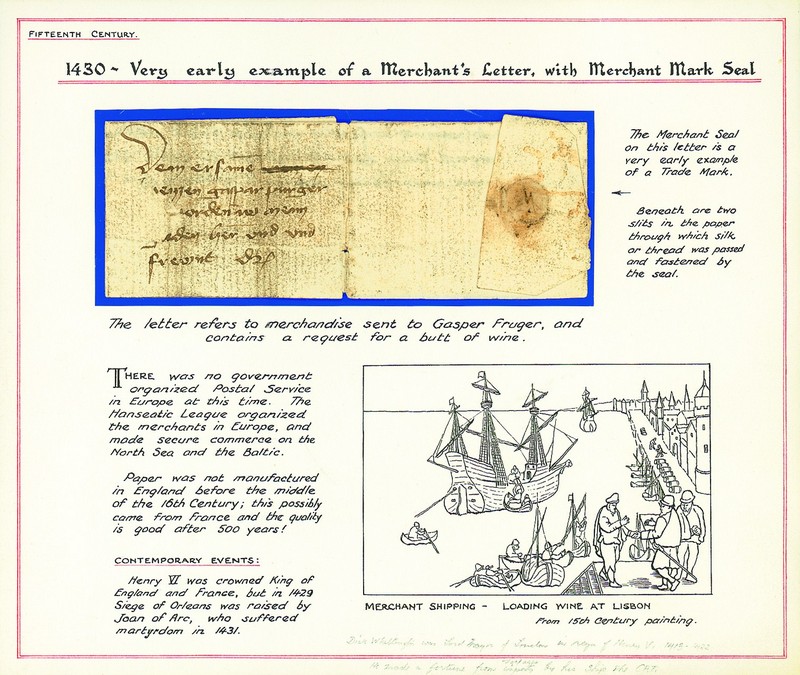 FIFTEENTH CENTURY.
1430 ~ Very early example of a Merchant's Letter, with Merchant Mark Seal
Dem ersame
gaspar
her vnd vnd
The Merchant Seal
on this letter is a
very early example
of a Trade Mark.
Beneath are two
slits in the paper
through which silk
or thread was passed
and fastened by
the seal.
The letter refers to merchandise sent to Gasper Fruger, and
contains a request for a butt of wine.
THERE was no government
organized Postal Service
in Europe at this time. The
Hanseatic League organized
the merchants in Europe, and
made secure commerce on the
North Sea and the Baltic.
Paper was not manufactured
in England before the middle
of the 16th Century; this possibly
came from France and the quality
is good after 500 years!
CONTEMPORARY EVENTS:
Henry VI was crowned King of
England and France, but in 1429
Siege of Orleans was raised by
Joan of Arc, who suffered
martyrdom in 1431.
MERCHANT SHIPPING - LOADING WINE AT LISBON
From 15th Century painting.
Dick Whittington was Lord Mayor of London in Reign of Henry V.
He made a fortune from by his Ship the CAT.